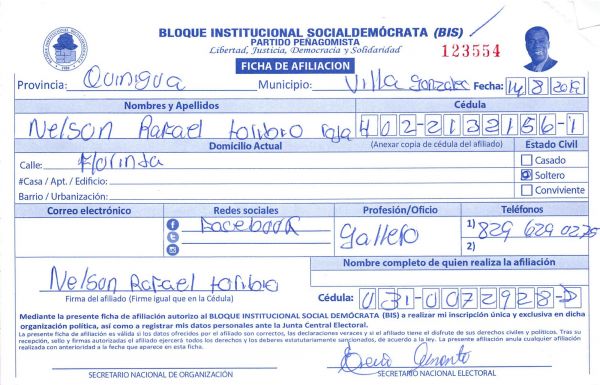 BLOQUE INSTITUCIONAL SOCIALDEMÓCRATA (BIS)
PARTIDO PEÑAGOMISTA
Libertad, Justicia, Democracia y Solidaridad
123554
FICHA DE AFILIACION
Provincia: Quinigua Municipio: Villa Gonzalez Fecha: 14/8/2019
Nombres y Apellidos Cédula
Nelson Rafael toribio 402-2132156-1
Domicilio Actual (Anexar copia de cédula del afiliado) Estado Civil
Calle: Florinda Casado
#Casa / Apt. / Edificio: Soltero
Barrio / Urbanización: Conviviente
Correo electrónico Redes sociales Profesión/Oficio Teléfonos
Facebook gallero 1) 829 629 0275
2)
Nombre completo de quien realiza la afiliación
Nelson Rafael toribio
Firma del afiliado (Firme igual que en la Cédula) Cédula: 031-0072928-
Mediante la presente ficha de afiliación autorizo al BLOQUE INSTITUCIONAL SOCIAL DEMÓCRATA (BIS) a realizar mi inscripción única y exclusiva en dicha
organización política, así como a registrar mis datos personales ante la Junta Central Electoral.
La presente ficha de afiliación es válida si los datos ofrecidos por el afiliado son correctos, las declaraciones veraces y si el afiliado tiene el disfrute de sus derechos civiles y políticos. Tras su
recepción, sello y firmas autorizadas el afiliado ejercerá todos los derechos y los deberes estatutariamente sancionados, de acuerdo a la ley. La presente afiliación anula cualquier afiliación
realizada con anterioridad a la fecha que aparece en esta ficha.
SECRETARIO NACIONAL DE ORGANIZACIÓN SECRETARIO NACIONAL ELECTORAL